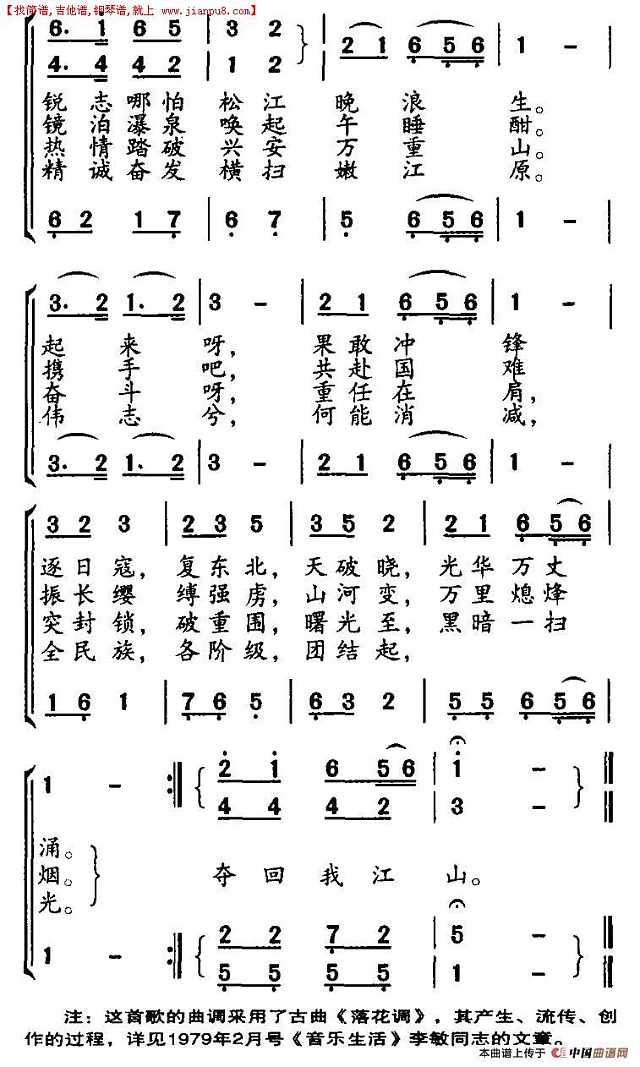 【找简谱,吉他谱,钢琴谱,就上 www.jianpu8.com】
6. 1 6 5 3 2 2 1 6 5 6 5
4. 4 4 2 1 2
锐志哪怕松江晚浪生。
镜泊瀑泉唤起午睡酣。
热情踏破兴安万重山。
精诚奋发横扫嫩江原。
6 2 1 7 6 7 5 6 5 6 1 -
3. 2 1. 2 3 - 2 1 6 5 6 1 -
起来呀,果敢冲锋
携手吧,共赴国难
奋斗呀,重任在肩,
伟志兮,何能消减,
3. 2 1. 2 3 - 2 1 6 5 6 1 -
3 2 3 2 3 5 3 5 2 2 1 6 5 6
逐日寇,复东北,天破晓,光华万丈
振长缨,缚强虏,山河变,万里熄烽
突封锁,破重围,曙光至,黑暗一扫
全民族,各阶级,团结起,
1 6 1 7 6 5 6 3 2 5 5 6 5 6
1 - 2 1 6 5 6 1 -
4 4 4 2 3 -
涌。
烟。
光。
夺回我江山。
1 - 2 2 7 2 5 -
5 5 5 5 1 -
注:这首歌的曲调采用了古曲《落花调》,其产生、流传、创
作的过程,详见1979年2月号《音乐生活》李敏同志的文章。
本曲谱上传于 中国曲谱网